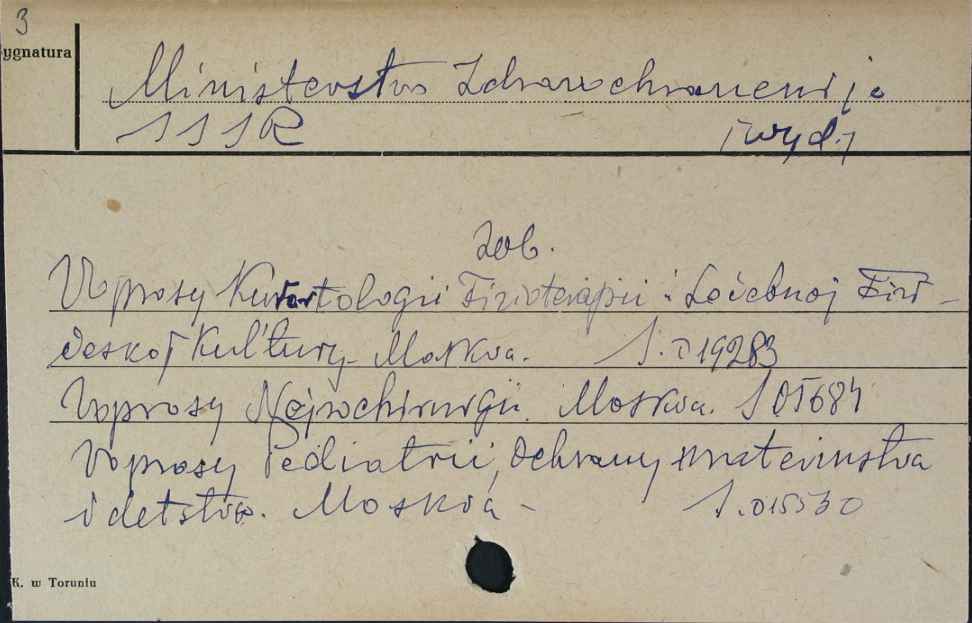 3
ygnatura
Ministerstvo Zdravochranenija
SSSR [wyd.]
zob.
Voprosy Kurortologii Fizioterapii i Lečebnoj Fizi-
českoj Kul'tury. Moskva. S. 019283
Voprosy Nejrochirurgii. Moskva. S 05684
Voprosy Pediatrii, Ochrany materinstva
i detstva. Moskva - S. 015530
K. w Toruniu